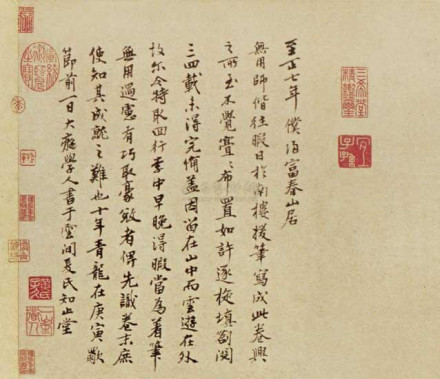 三希堂精鑑璽
宜子孫
至正七年僕歸富春山居
無用師偕往暇日於南樓援筆寫成此卷興
之所至不覺亹〻布置如許逐旋填劄閱
三四載未得完備蓋因留在山中而雲遊在外
故爾今特取回行李中早晚得暇當為著筆
無用過慮有巧取豪敓者俾先識卷末庶
使知其成就之難也十年青龍在庚寅歜
節前一日大癡學人書于雲間夏氏知止堂